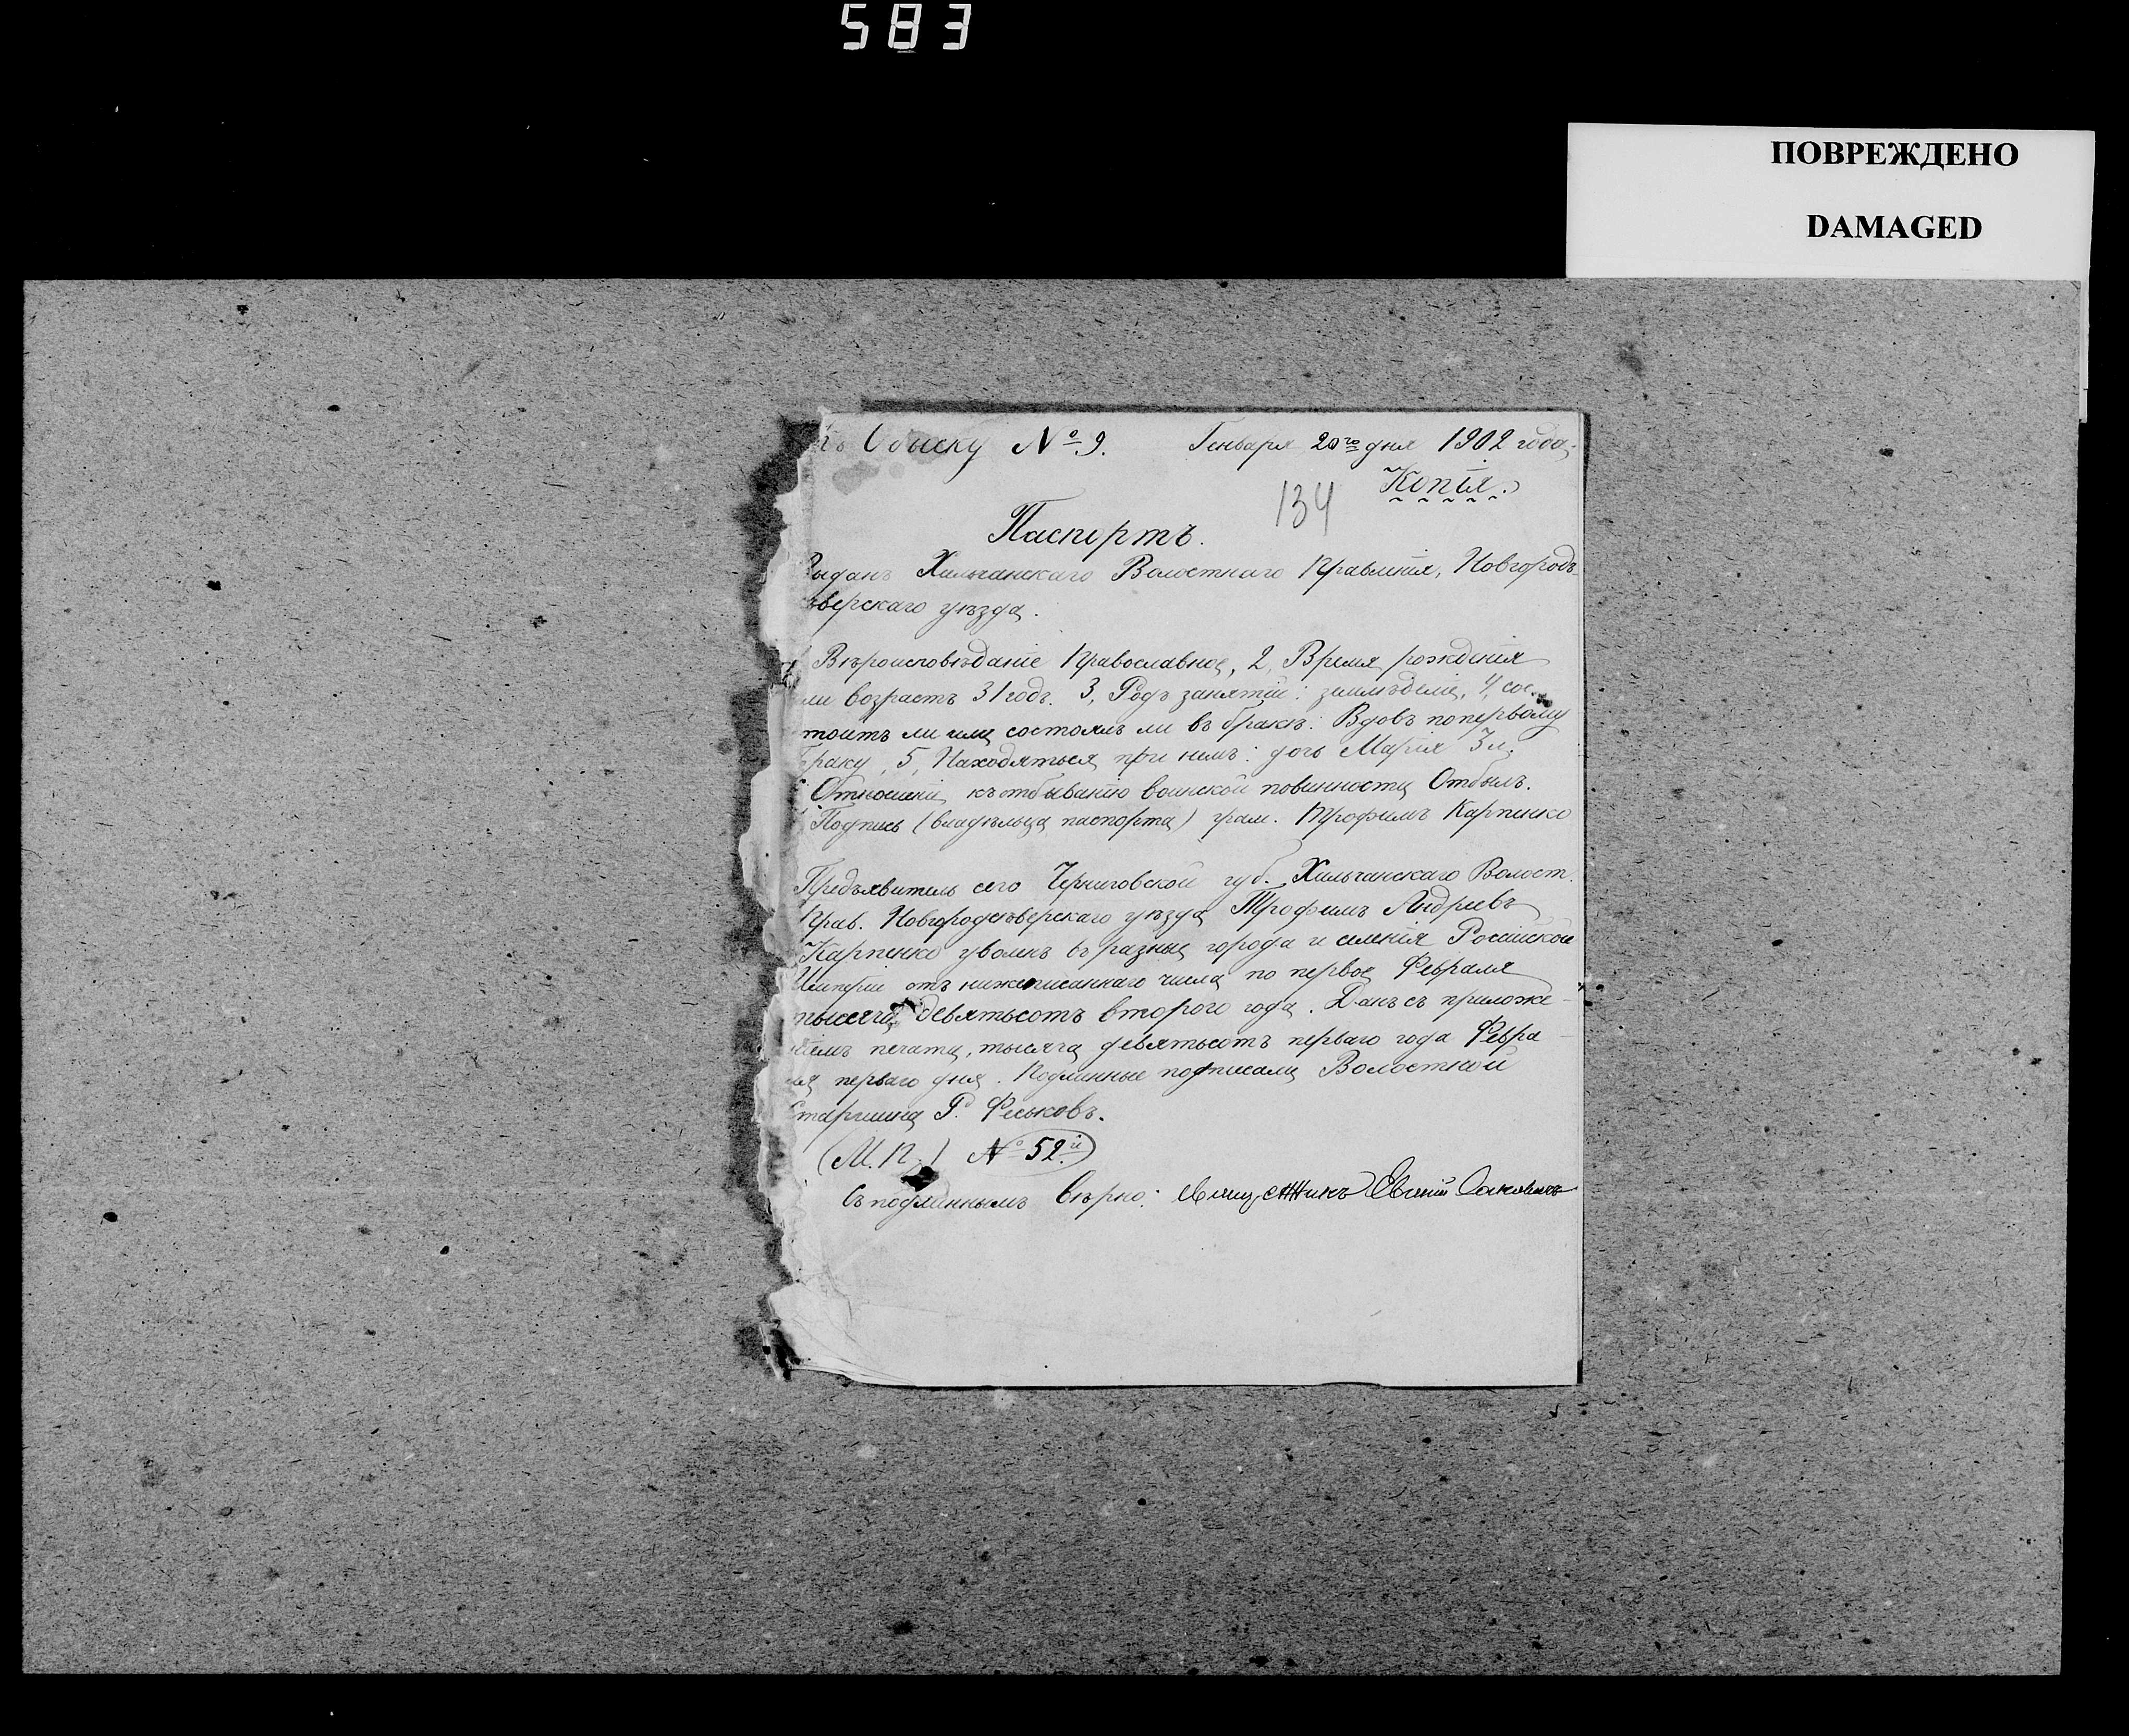 583
ПОВРЕЖДЕНО
DAMAGED
Къ Обыску № 9. Генваря 20го дня 1902 года.
Копія.
134
Паспортъ.
Выданъ Хильчанскаго Волостнаго Правленія, Новгородъ-
сѣверскаго уѣзда.
Вѣроисповѣданіе Православное, 2, Время рожденія
или возрастъ 31 годъ. 3, Родъ занятій: земледѣліе, 4, сос-
тоитъ ли или состоялъ ли въ бракѣ: Вдовъ по первому
браку, 5, Находяться при немъ: дочь Марія 3 л.
Отношеніе къ отбыванію воинской повинности Отбылъ.
Подпись (владѣльца паспорта) грам. Трофимъ Карпенко
Предъявитель сего Черниговской губ. Хильчанскаго Волост.
Прав. Новгородсѣверскаго уѣзда Трофимъ Андреевъ
Карпенко уволенъ въ разные города и селенія Россійской
Имперіи отъ нижеписаннаго числа по первое Февраля
тысяча девятьсотъ второго года. Данъ съ приложе-
ніемъ печати, тысяча девятьсотъ перваго года Февра-
ля перваго дня. Подлинные подписали Волостной
Старшина Г. Феськовъ.
(М.П.) № 52.й
Съ подлиннымъ вѣрно: Священникъ Евгеній